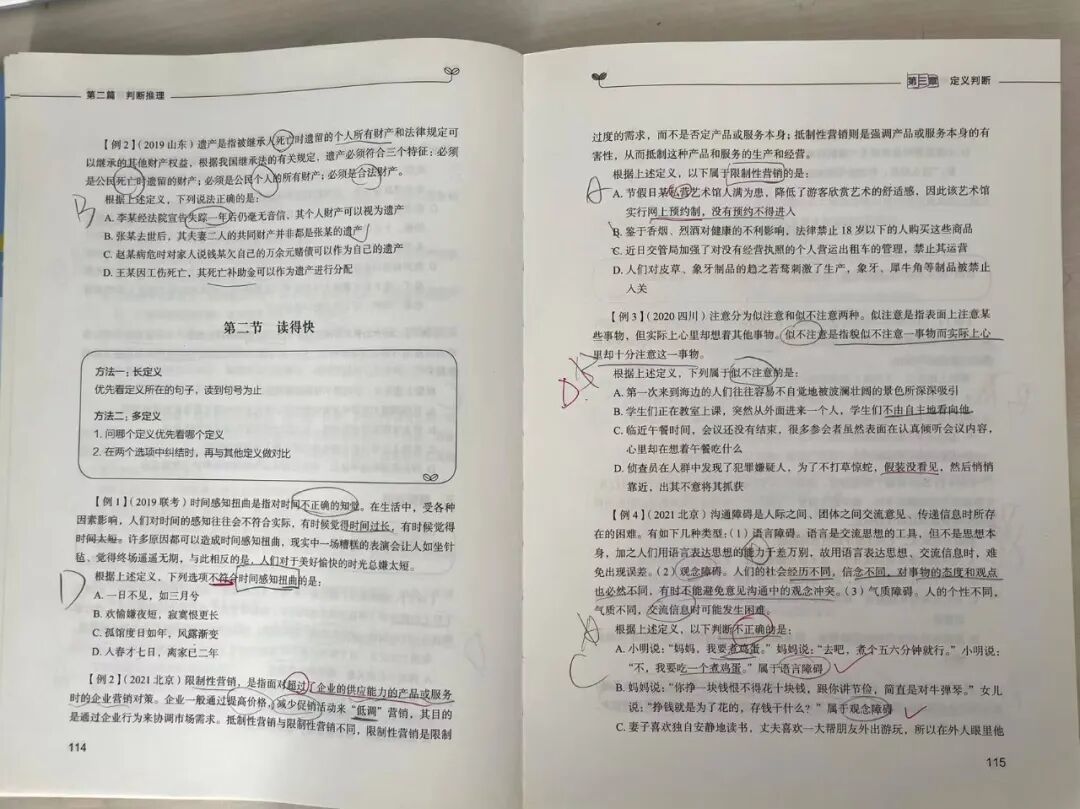 第二篇 判断推理
【例2】(2019 山东)遗产是指被继承人死亡时遗留的个人所有财产和法律规定可
以继承的其他财产权益,根据我国继承法的有关规定,遗产必须符合三个特征:必须
是公民死亡时遗留的财产;必须是公民个人的所有财产;必须是合法财产。
根据上述定义,下列说法正确的是:
B
A. 李某经法院宣告失踪一年后仍毫无音信,其个人财产可以视为遗产
B. 张某去世后,其夫妻二人的共同财产并非都是张某的遗产
C. 赵某病危时对家人说钱某欠自己的万余元赌债可以作为自己的遗产
D. 王某因工伤死亡,其死亡补助金可以作为遗产进行分配
第二节 读得快
方法一:长定义
优先看定义所在的句子,读到句号为止
方法二:多定义
1. 问哪个定义优先看哪个定义
2. 在两个选项中纠结时,再与其他定义做对比
【例1】(2019 联考)时间感知扭曲是指对时间不正确的知觉。在生活中,受各种
因素影响,人们对时间的感知往往会不符合实际,有时候觉得时间过长,有时候觉得
时间太短。许多原因都可以造成时间感知扭曲,现实中一场糟糕的表演会让人如坐针
毡、觉得终场遥遥无期,与此相反的是,人们对于美好愉快的时光总嫌太短。
根据上述定义,下列选项不符合时间感知扭曲的是:
D
A. 一日不见,如三月兮
B. 欢愉嫌夜短,寂寞恨更长
C. 孤馆度日如年,风露渐变
D. 人春才七日,离家已二年
【例2】(2021 北京)限制性营销,是指面对超过了企业的供应能力的产品或服务
时的企业营销对策。企业一般通过提高价格,减少促销活动来“低调”营销,其目的
是通过企业行为来协调市场需求。抵制性营销与限制性营销不同,限制性营销是限制
114
第三章 定义判断
过度的需求,而不是否定产品或服务本身;抵制性营销则是强调产品或服务本身的有
害性,从而抵制这种产品和服务的生产和经营。
根据上述定义,以下属于限制性营销的是:
A
A. 节假日某私营艺术馆人满为患,降低了游客欣赏艺术的舒适感,因此该艺术馆
实行网上预约制,没有预约不得进入
B. 鉴于香烟、烈酒对健康的不利影响,法律禁止 18 岁以下的人购买这些商品
C. 近日交管局加强了对没有经营执照的个人营运出租车的管理,禁止其运营
D. 人们对皮草、象牙制品的趋之若鹜刺激了生产,象牙、犀牛角等制品被禁止
入关
【例3】(2020 四川)注意分为似注意和似不注意两种。似注意是指表面上注意某
些事物,但实际上心里却想着其他事物。似不注意是指貌似不注意一事物而实际上心
里却十分注意这一事物。
根据上述定义,下列属于似不注意的是:
D
A. 第一次来到海边的人们往往容易不自觉地被波澜壮阔的景色所深深吸引
B. 学生们正在教室上课,突然从外面进来一个人,学生们不由自主地看向他
C. 临近午餐时间,会议还没有结束,很多参会者虽然表面在认真倾听会议内容,
心里却在想着午餐吃什么
D. 侦查员在人群中发现了犯罪嫌疑人,为了不打草惊蛇,假装没看见,然后悄悄
靠近,出其不意将其抓获
【例4】(2021 北京)沟通障碍是人际之间、团体之间交流意见、传递信息时所存
在的困难。有如下几种类型:(1)语言障碍。语言是交流思想的工具,但不是思想本
身,加之人们用语言表达思想的能力千差万别,故用语言表达思想、交流信息时,难
免出现误差。(2)观念障碍。人们的社会经历不同,信念不同,对事物的态度和观点
也必然不同,有时不能避免意见沟通中的观念冲突。(3)气质障碍。人的个性不同,
气质不同,交流信息时可能发生困难。
根据上述定义,以下判断不正确的是:
C
A. 小明说:“妈妈,我要煮鸡蛋。”妈妈说:“去吧,煮个五六分钟就行。”小明说:
“不,我要吃一个煮鸡蛋。”属于语言障碍
B. 妈妈说:“你挣一块钱恨不得花十块钱,跟你讲节俭,简直是对牛弹琴。”女儿
说:“挣钱就是为了花的,存钱干什么?”属于观念障碍
C. 妻子喜欢独自安静地读书,丈夫喜欢一大帮朋友外出游玩,所以在外人眼里他
115